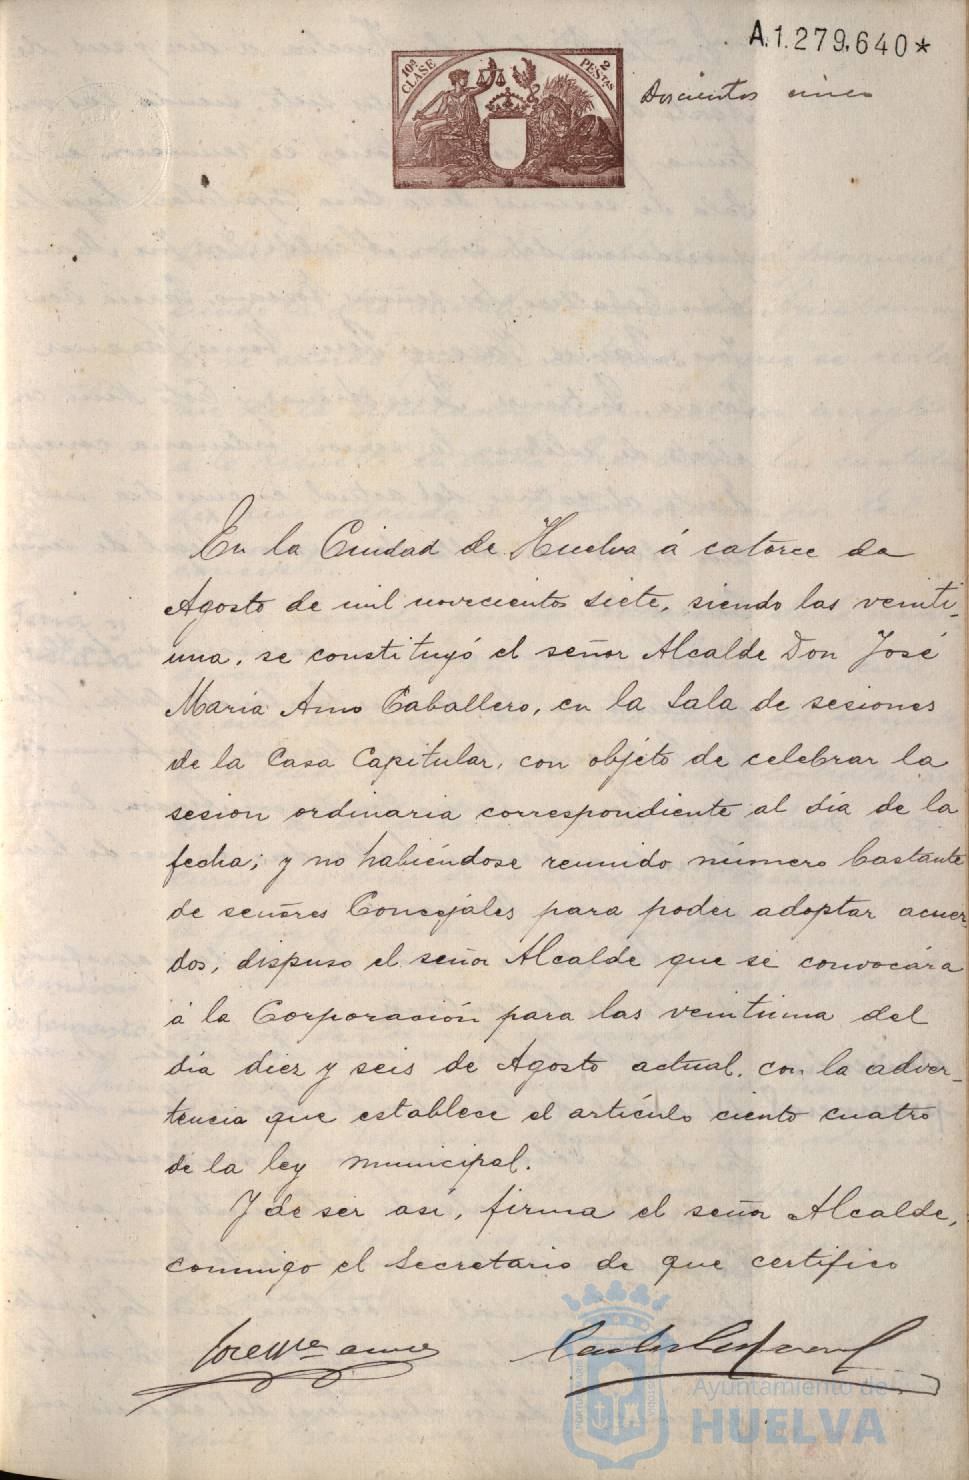 A.1.279.640*
10ª CLASE
2 PESTAS
Doscientos cinco
En la Ciudad de Huelva á catorce de
Agosto de mil novecientos siete, siendo las veinti-
una, se constituyó el señor Alcalde Don José
Maria Amo Caballero, en la Sala de sesiones
de la Casa Capitular, con objeto de celebrar la
sesion ordinaria correspondiente al dia de la
fecha; y no habiéndose reunido número bastante
de señores Concejales para poder adoptar acuer-
dos, dispuso el señor Alcalde que se convocára
á la Corporación para las veintiuna del
dia diez y seis de Agosto actual, con la adver-
tencia que establece el artículo ciento cuatro
de la ley municipal.
Y de ser asi, firma el señor Alcalde,
conmigo el Secretario de que certifico
José Mª Amo
Ayuntamiento de
HUELVA